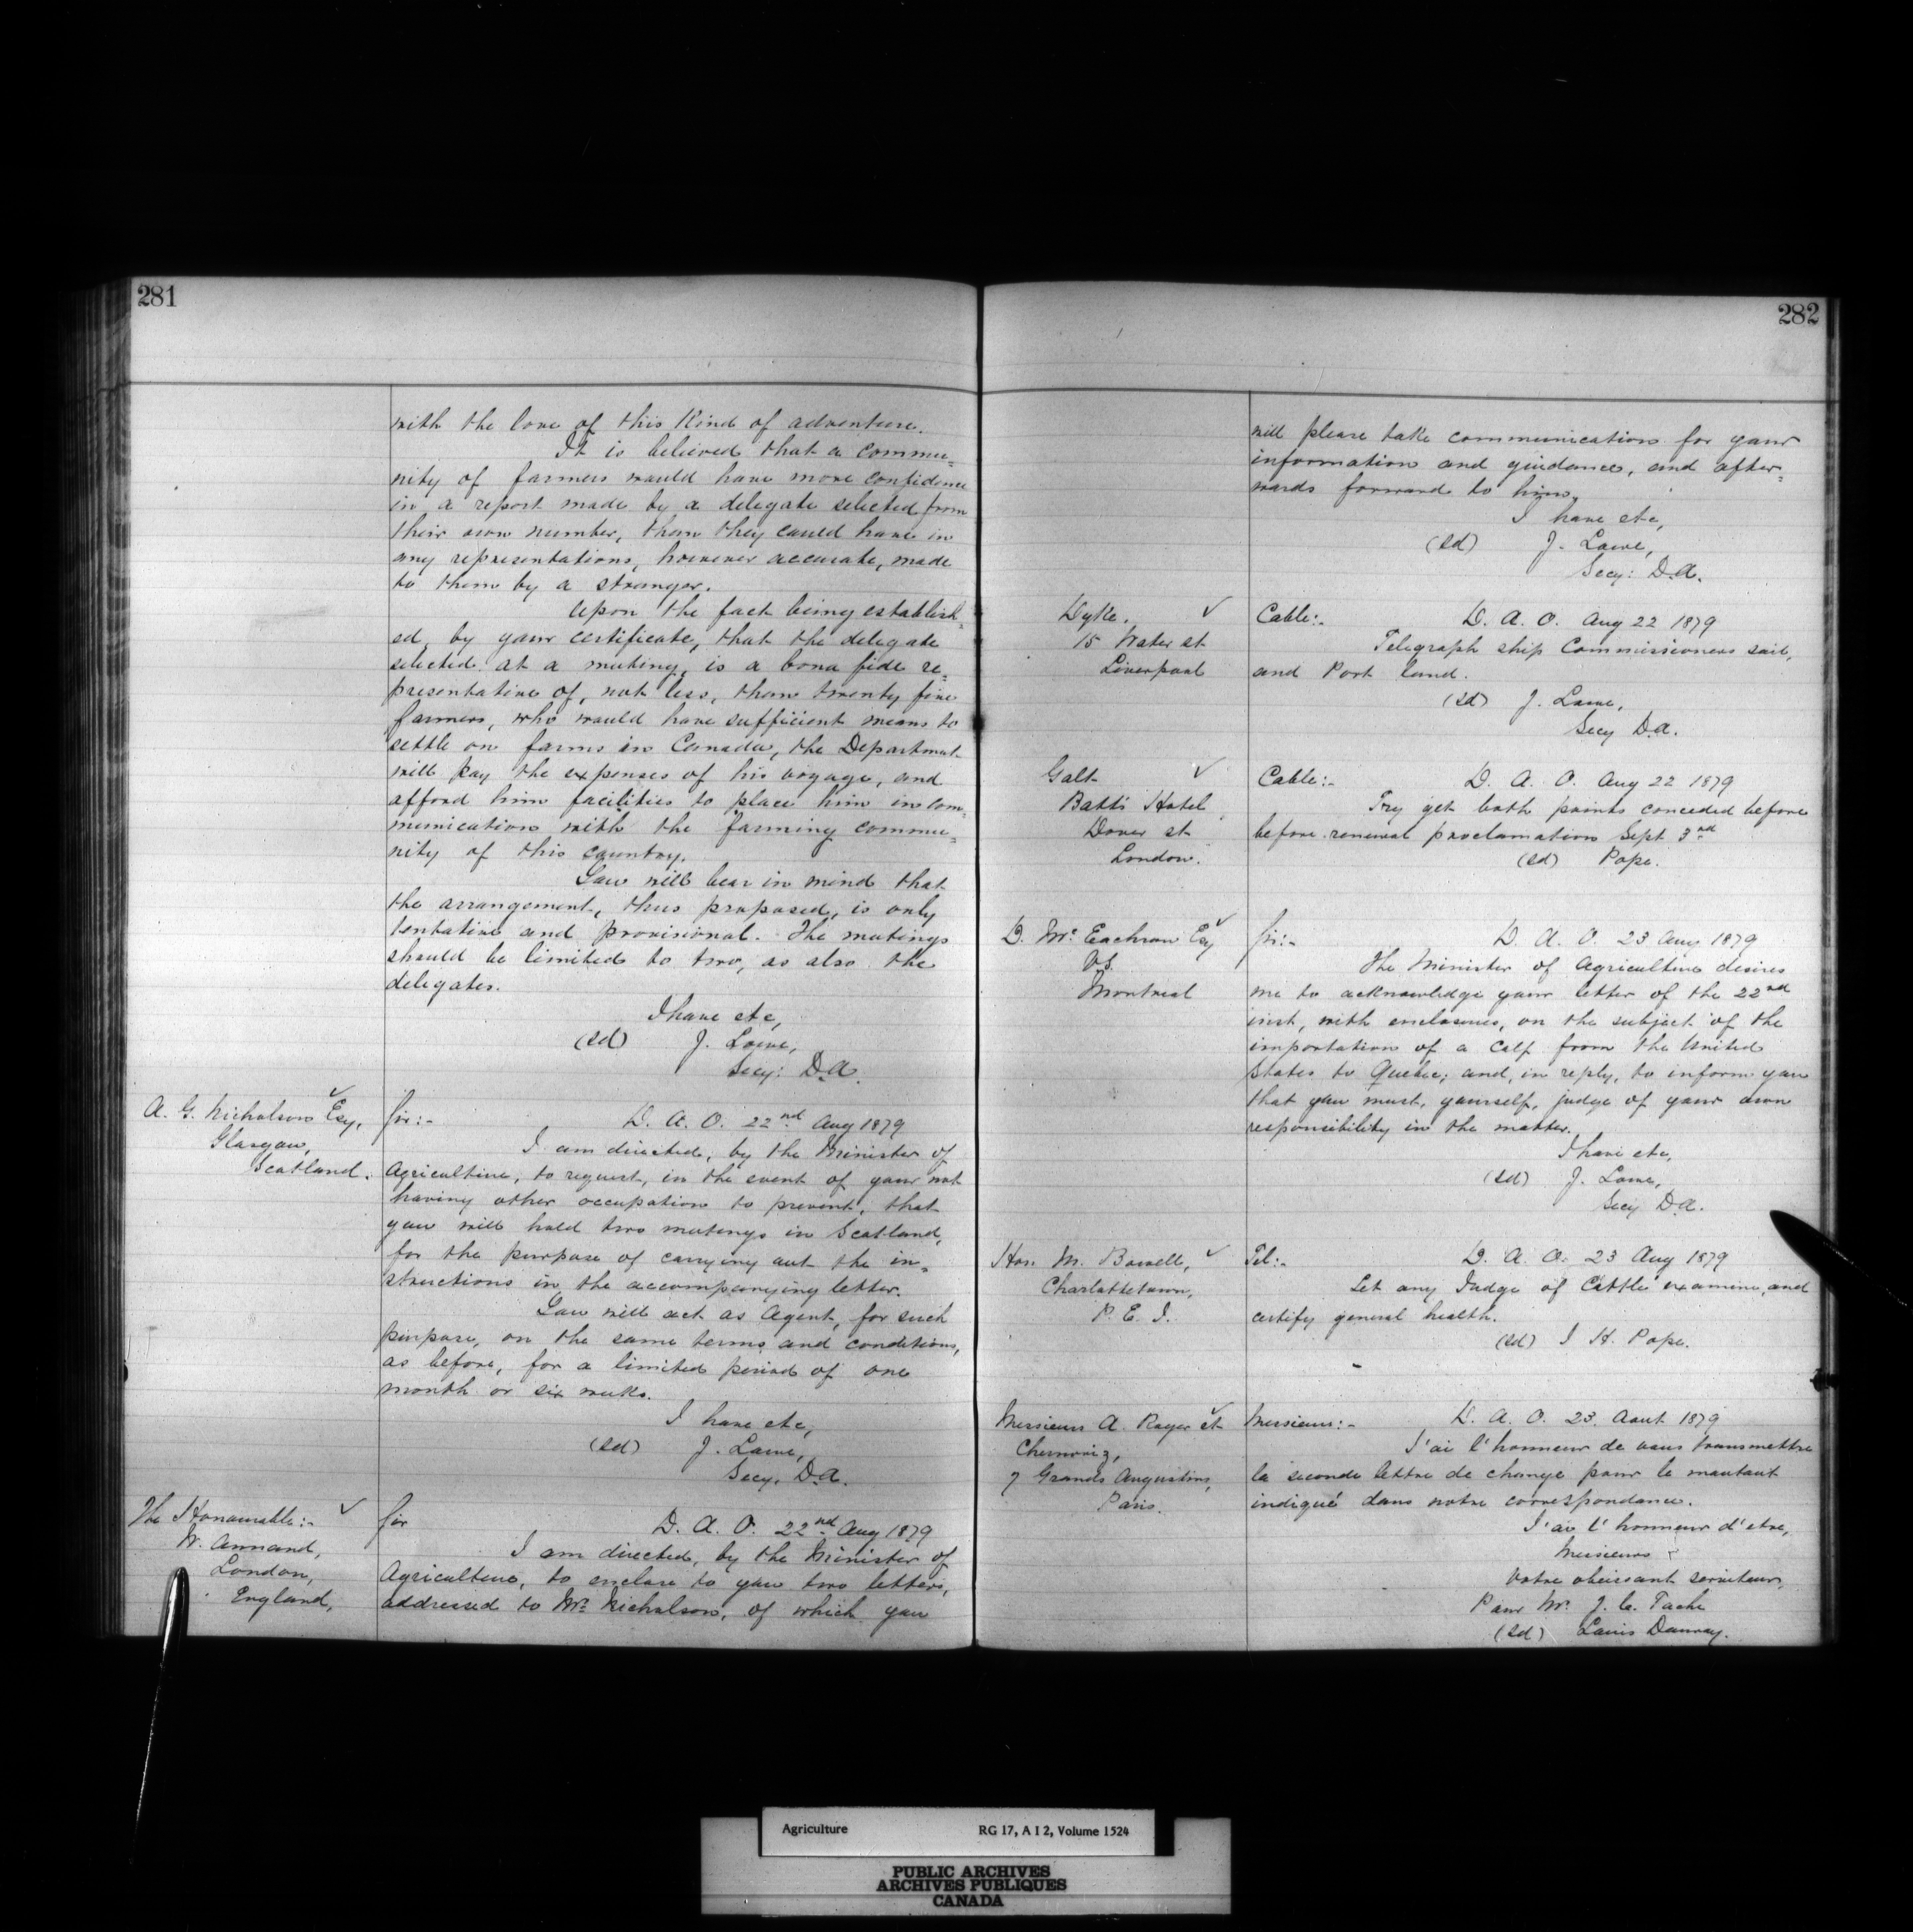 281
with the love of this Kind of adventure.
It is believed that a commu=
nity of farmers would have more confidence
in a report made by a delegate selected from
their own number, than they could have in
any representations, however accurate, made
to them by a stranger.
Upon the fact being establish=
ed, by your certificate, that the delegate
selected at a meeting, is a bona fide re=
presentative of, not less, than twenty five
farmers, who would have sufficient means to
settle on farms in Canada, the Department
will pay the expenses of his voyage, and
afford him facilities to place him in com=
munication with the farming commu=
nity of this country.
You will bear in mind that
the arrangement, thus proposed, is only
tentative and provisional. The meetings
should be limited to two, as also the
delegates.
I have etc,
(sd) J. Lowe,
Secy: D.A.
A. G. Nicholson Esq,
Glasgow,
Scotland.
Sir:- D. A. O. 22nd Aug 1879
I am directed, by the Minister of
Agriculture, to request, in the event of your not
having other occupation to prevent, that
you will hold two meetings in Scotland,
for the purpose of carrying out the in=
structions in the accompanying letter.
You will act as Agent, for such
purpose, on the same terms and conditions,
as before, for a limited period of one
month or six weeks.
I have etc,
(sd) J. Lowe,
Secy. D.A.
The Honourable:-
W. Annand,
London,
England,
Sir D. A. O. 22nd Aug 1879
I am directed, by the Minister of
Agriculture, to enclose to you two letters,
addressed to Mr. Nicholson, of which you
282
will please take communication for your
information and guidance, and after=
wards forward to him.
I have etc,
(sd) J. Lowe,
Secy: D.A.
Dyke.
15 Water st
Liverpool
Cable:- D. A. O. Aug 22 1879
Telegraph ship Commissioners sail,
and Port land.
(sd) J. Lowe,
Secy D.A.
Galt
Batts Hotel,
Dover st
London.
Cable:- D. A. O. Aug 22 1879
Try get both points conceded before
before renewal proclamation Sept 3rd
(sd) Pope.
D. Mc Eachran Esq
V.S.
Montreal
Sir:- D. A. O. 23 Aug 1879
The Minister of Agriculture desires
me to acknowledge your letter of the 22nd
inst, with enclosures, on the subject of the
importation of a Calf from the United
States to Quebec; and, in reply, to inform you
that you must, yourself, judge of your own
responsibility in the matter.
I have etc,
(sd) J. Lowe,
Secy D.A.
Hon. M. Bowell,
Charlottetown,
P. E. I.
Tel:- D. A. O. 23 Aug 1879
Let any Judge of Cattle examine, and
certify general health.
(sd) J H. Pope.
Messieurs A. Roger et
Chernoviz,
7 Grands Augustins,
Paris.
Messieurs:- D. A. O. 23. Aout 1879
J'ai l'honneur de vous transmettre
la seconde lettre de change pour le montant
indiqué dans notre correspondance.
J'ai l'honneur d'etre,
Messieurs
Votre obeissant serviteur,
Pour Mr. J. C. Taché
(sd) Louis
Agriculture RG 17, A I 2, Volume 1524
PUBLIC ARCHIVES
ARCHIVES PUBLIQUES
CANADA